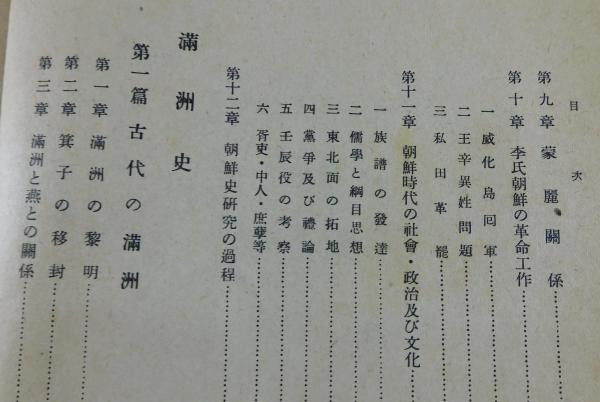 目次
第九章 蒙麗關係
第十章 李氏朝鮮の革命工作
一 威化島囘軍
二 王辛異姓問題
三 私田革罷
第十一章 朝鮮時代の社會・政治及び文化
一 族譜の發達
二 儒學と綱目思想
三 東北面の拓地
四 黨爭及び禮論
五 壬辰役の考察
六 胥吏・中人・庶孽等
第十二章 朝鮮史硏究の過程
滿洲史
第一篇 古代の滿洲
第一章 滿洲の黎明
第二章 箕子の移封
第三章 滿洲と燕との關係